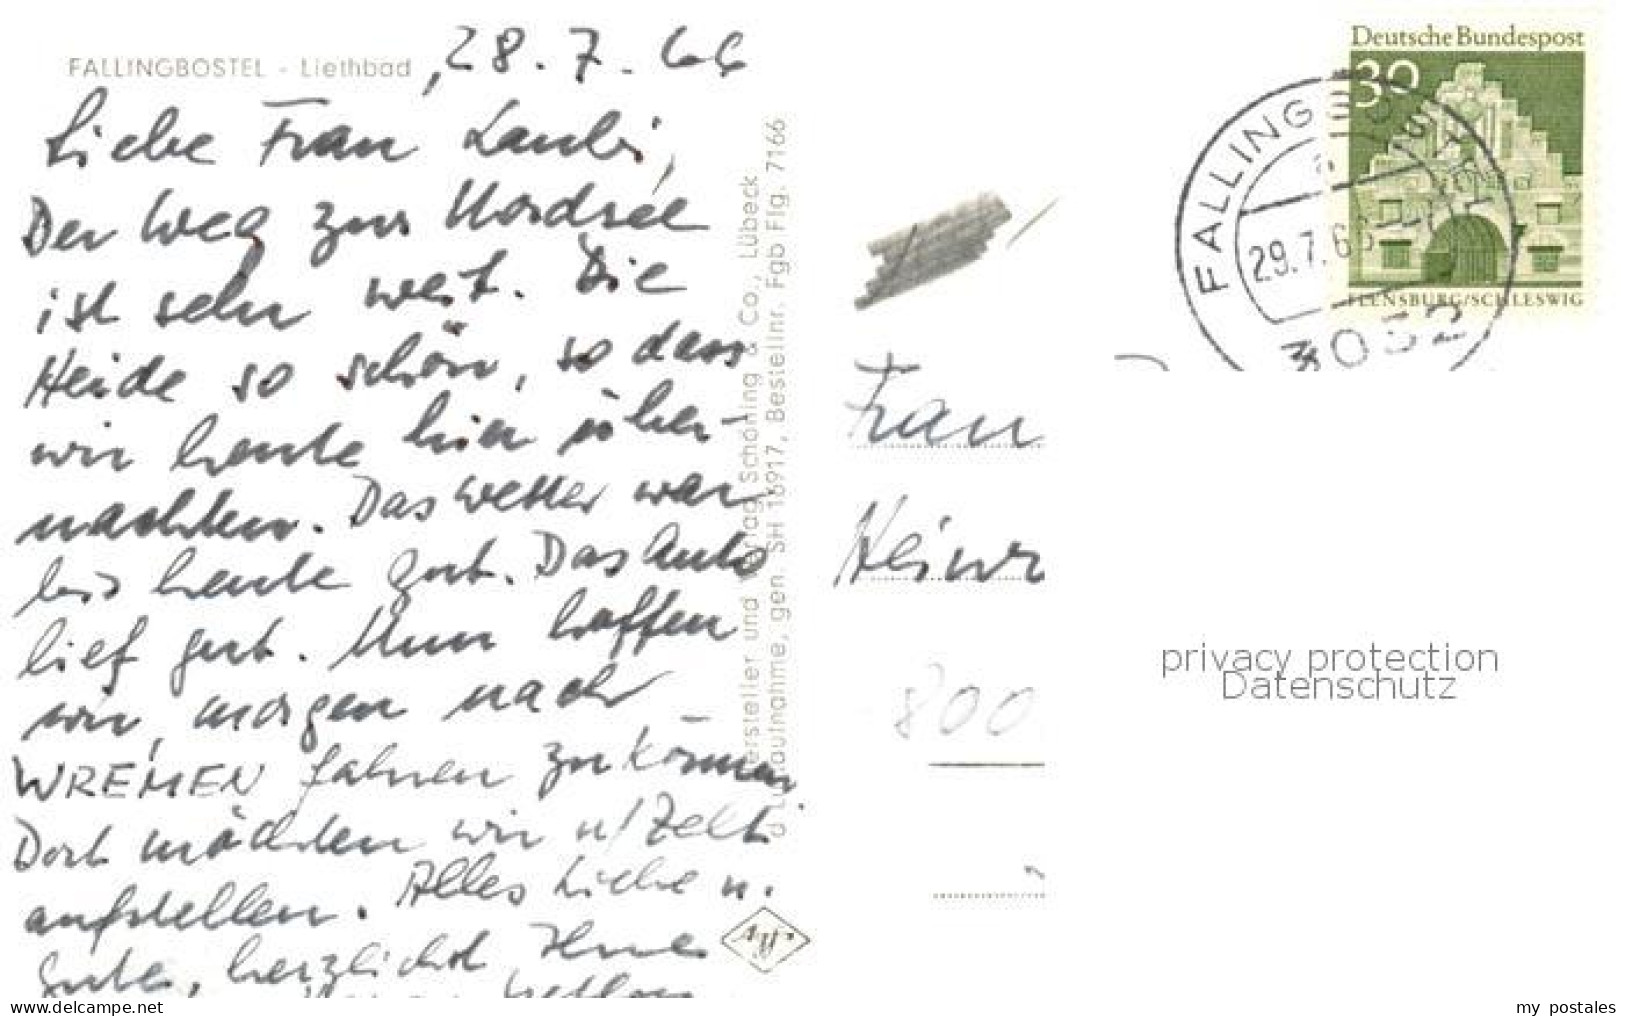 FALLINGBOSTEL - Liethbad
28.7.66
Liebe Frau
Der Weg zur Nordsee
ist sehr weit. Die
Heide so schön, so dass
wir heute hier über-
nachten. Das Wetter war
bis heute gut. Das Auto
lief gut. Nun hoffen
wir, morgen nach
WREMEN fahren zu können.
Dort möchten wir u/Zelt
aufstellen. Alles Liebe u.
Gute, herzlichst Ihre
Hersteller und Verlag Schöning & Co., Lübeck
Luftaufnahme, gen. SH 16917, Bestellnr. Fgb Flg. 7166
Deutsche Bundespost
30
FLENSBURG/SCHLESWIG
FALLING
a
29.7.66
3032
Frau
Heinr
800
privacy protection
Datenschutz
www.delcampe.net
my_postales